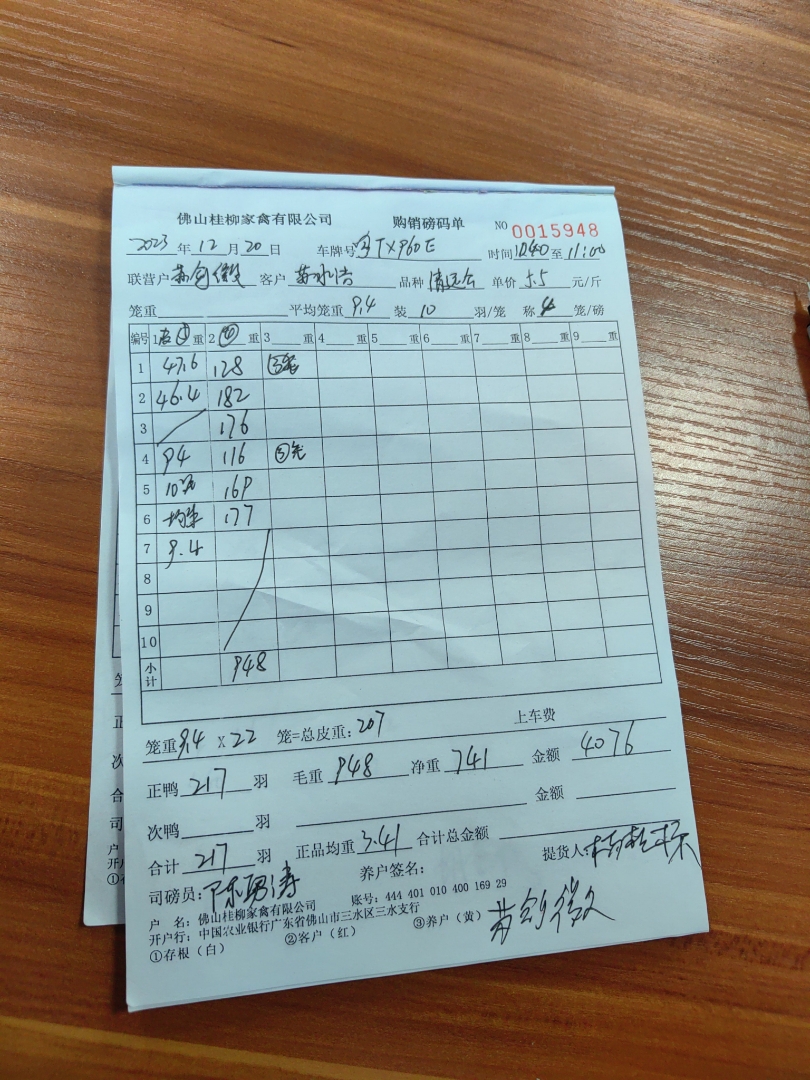 佛山桂柳家禽有限公司 购销磅码单 NO 0015948
2023 年 12 月 20 日 车牌号 粤TX960E 时间 10:40 至 11:00
联营户 客户 品种 单价 5.5 元/斤
笼重 平均笼重 9.4 装 10 羽/笼 称 4 笼/磅
编号 1 重 2 重 3 重 4 重 5 重 6 重 7 重 8 重 9 重
1 47.6 128
2 46.4 182
3 176
4 94 116
5 169
6 177
7 9.4
8
9
10
小计 948
笼重 9.4 X 22 笼=总皮重: 207 上车费
正鸭 217 羽 毛重 948 净重 741 金额 4076
次鸭 羽 金额
合计 217 羽 正品均重 3.41 合计总金额
司磅员: 陈 涛 养户签名: 提货人:
户 名: 佛山桂柳家禽有限公司 账号: 444 401 010 400 169 29
开户行: 中国农业银行广东省佛山市三水区三水支行
①存根（白） ②客户（红） ③养户（黄）